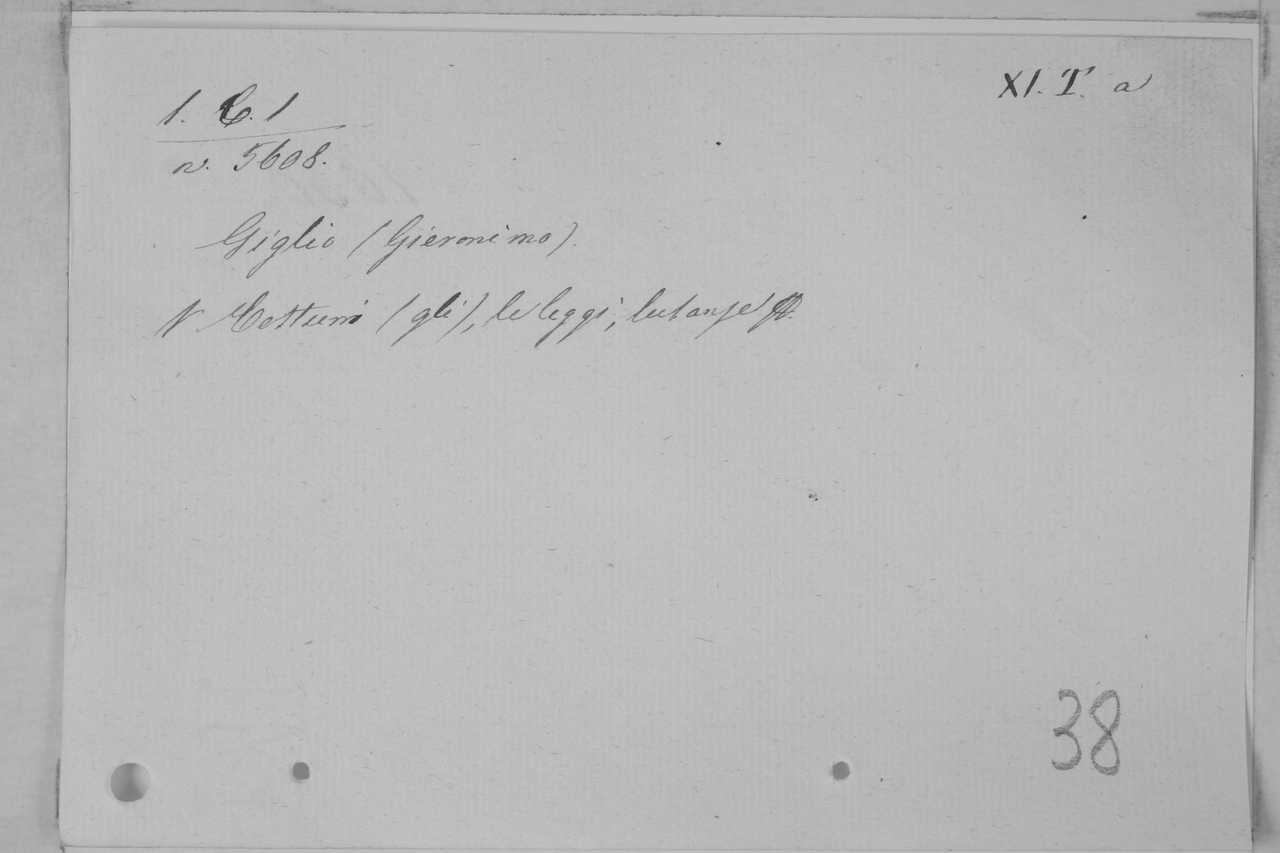 1. C. 1
n. 5608.
XI. T. a
Giglio (Gieronimo).
V Costumi (gli), le leggi, l'usanze
38